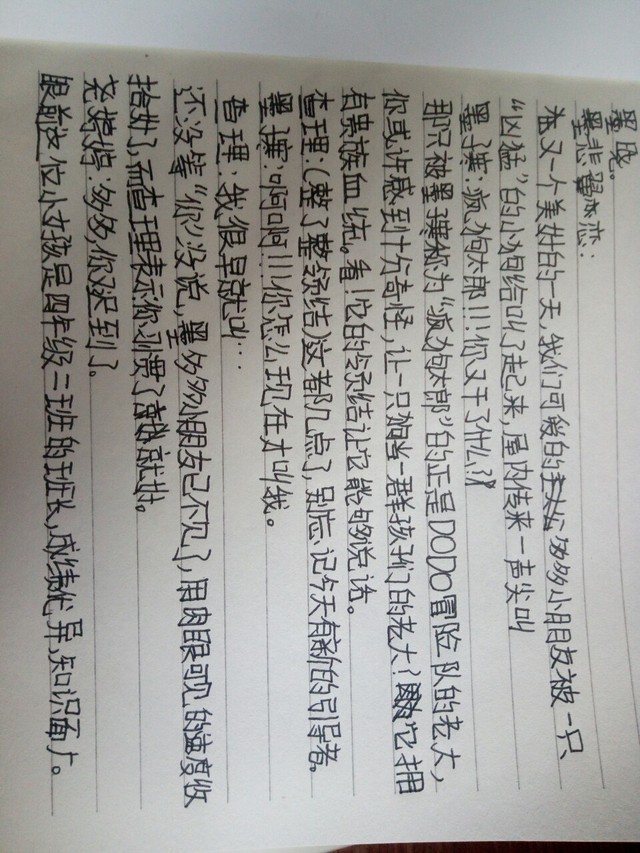 墨晓。
墨悲翼恋：
在又一个美好的一天，我们可爱的多多小朋友被一只
“凶猛”的小狗给叫了起来，屋内传来一声尖叫
墨多多：疯狗太郎!!!你又干了什么?”
那只被墨多多称为“疯狗太郎”的正是DODO冒险队的老大，
你或许感到十分奇怪，让一只狗当一群孩子们的老大？它拥
有贵族血统。看!它的领结让它能够说话。
查理：（整了整领结）这都几点了，别忘记今天有新的引导者。
墨多多：啊啊!!!你怎么现在才叫我。
查理：我很早就叫…
还没等“你少没说，墨多多小朋友已不见了，用肉眼可见的速度收
拾好了，而查理表示你习惯了就好。
尧婷婷：多多，你迟到了。
眼前这位小女孩是四年级二班的班长，成绩优异，知识面广。